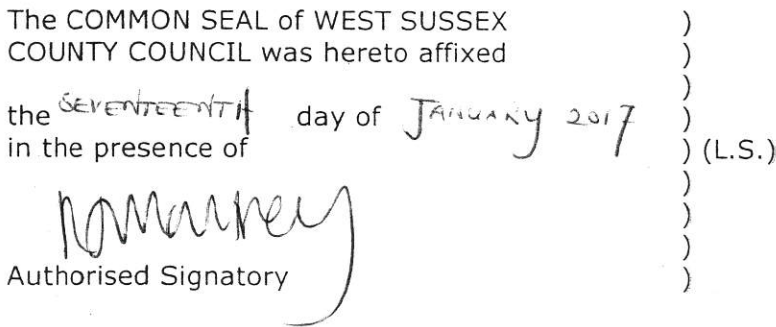 The COMMON SEAL of WEST SUSSEX )
COUNTY COUNCIL was hereto affixed )
)
the SEVENTEENTH day of JANUARY 2017 )
in the presence of ) (L.S.)
)
)
)
Authorised Signatory )